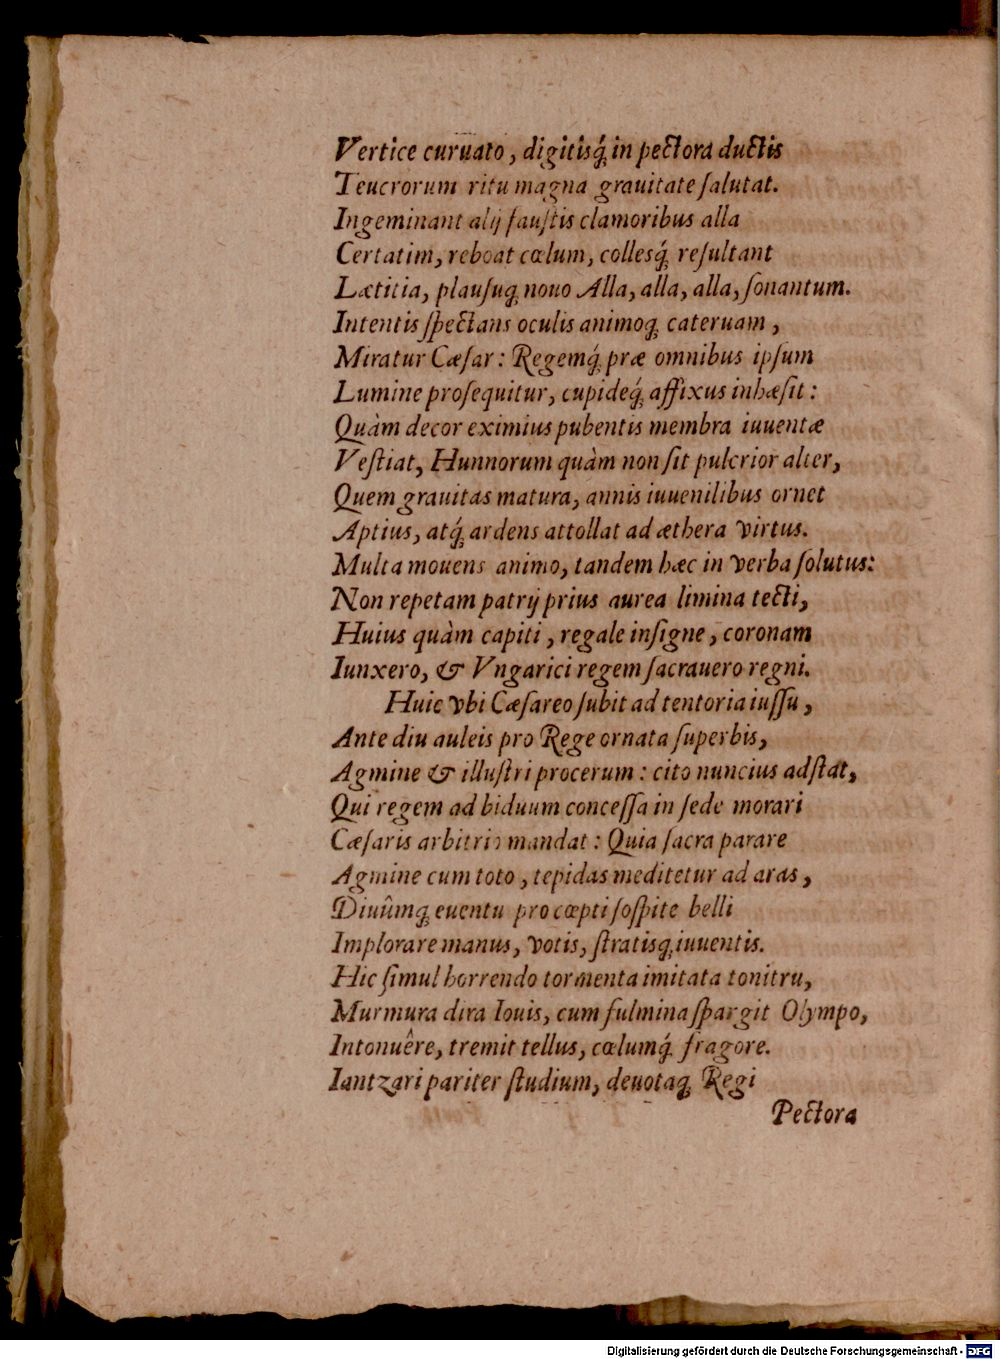 Vertice curuato, digitisq́; in pectora ductis
Teucrorum ritu magna grauitate ſalutat.
Ingeminant alij fauſtis clamoribus alla
Certatim, reboat cœlum, collesq́; reſultant
Lætitia, plauſuq; nouo Alla, alla, alla, ſonantum.
Intentis ſpectans oculis animoq; cateruam,
Miratur Cæſar: Regemq́; præ omnibus ipſum
Lumine proſequitur, cupideq́; affixus inhæſit:
Quàm decor eximius pubentis membra iuuentæ
Veſtiat, Hunnorum quàm non ſit pulcrior alter,
Quem grauitas matura, annis iuuenilibus ornet
Aptius, atq́; ardens attollat ad æthera virtus.
Multa mouens animo, tandem hæc in verba ſolutus:
Non repetam patrij prius aurea limina tecti,
Huius quàm capiti, regale inſigne, coronam
Iunxero, & Vngarici regem ſacrauero regni.
Huic vbi Cæſareo ſubit ad tentoria iuſſu,
Ante diu auleis pro Rege ornata ſuperbis,
Agmine & illuſtri procerum: cito nuncius adſtat,
Qui regem ad biduum conceſſa in ſede morari
Cæſaris arbitrio mandat: Quia ſacra parare
Agmine cum toto, tepidas meditetur ad aras,
Diuûmq; euentu pro cœpti ſoſpite belli
Implorare manus, votis, ſtratisq; iuuentis.
Hic ſimul horrendo tormenta imitata tonitru,
Murmura dira Iouis, cum fulmina ſpargit Olympo,
Intonuêre, tremit tellus, cœlumq́; fragore.
Iantzari pariter ſtudium, deuotaq; Regi
Pectora
Digitalisierung gefördert durch die Deutsche Forschungsgemeinschaft - DFG